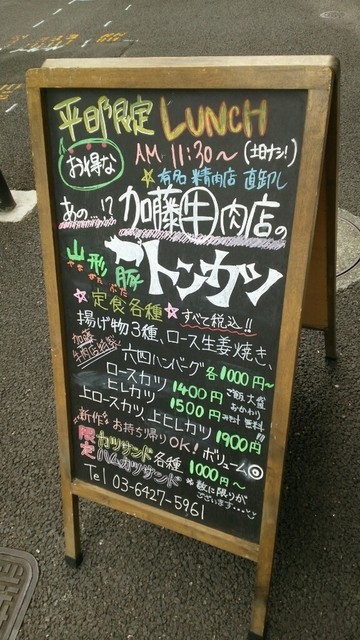 平日限定 LUNCH
お得な
AM 11:30～ (土日ナシ!)
☆有名 精肉店 直卸し
あの!?加藤牛肉店の
山形豚
やまがたぶた
トンカツ
☆定食各種☆ すべて税込!!
揚げ物3種、ロース生姜焼き、
加藤牛肉店特製
六四ハンバーグ 各1000円～
ロースカツ 1400円
ヒレカツ 1500円
ご飯、大盛
おかわり
無料!!
上ロースカツ、上ヒレカツ 1900円
"新作" お持ち帰りOK! ボリューム◎
限定 カツサンド 各種 1000円～
ハムカツサンド
※数に限りが
ございます…
Tel 03-6427-5961